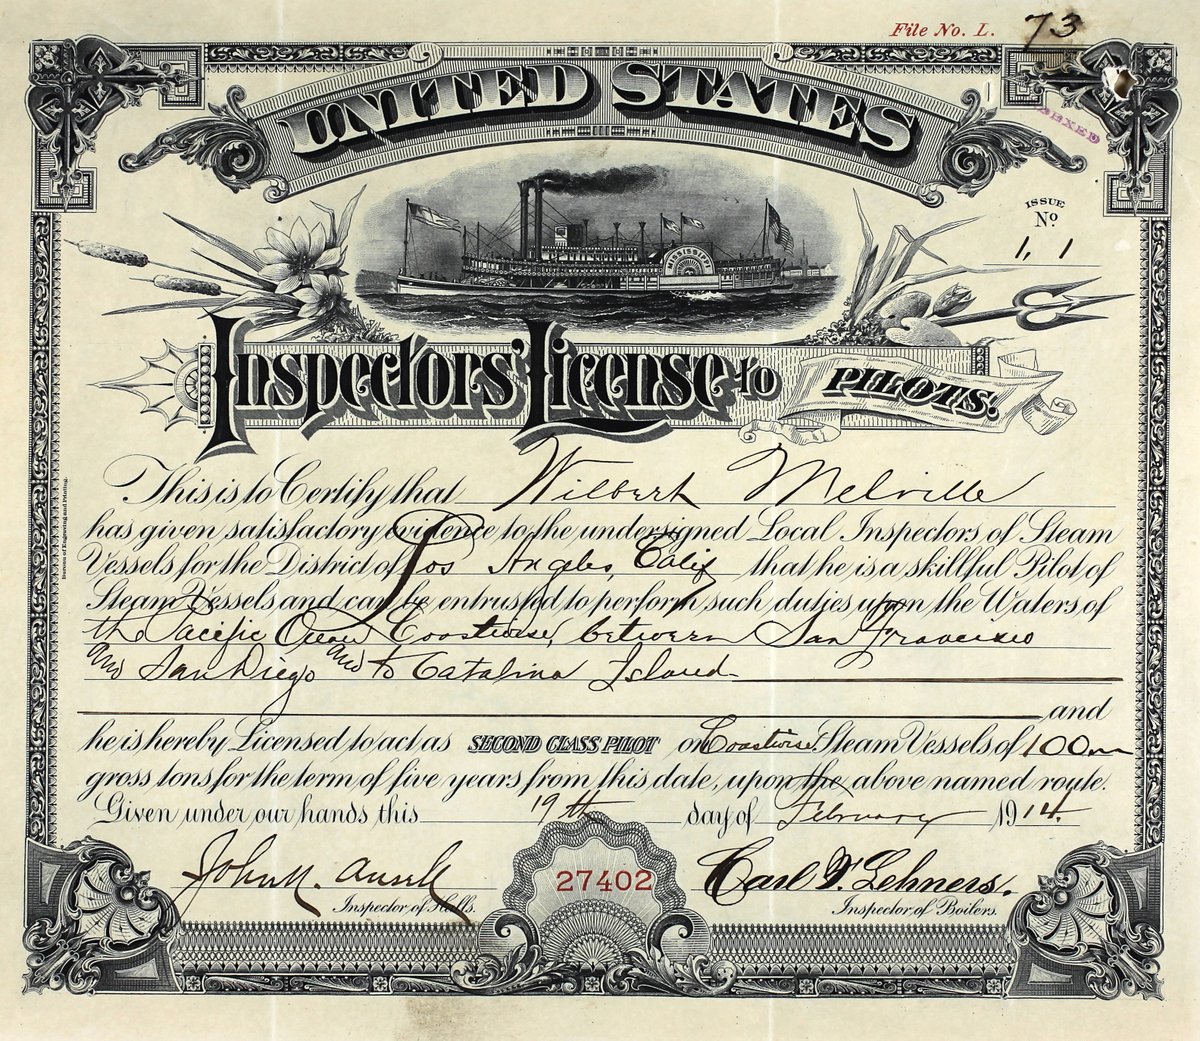 File No. L. 73
UNITED STATES
ISSUE
No.
1, 1
MISSISSIPPI
INSPECTORS' LICENSE to PILOTS.
This is to Certify that Wilbert Melville
has given satisfactory evidence to the undersigned Local Inspectors of Steam
Vessels for the District of Los Angeles, Calif that he is a skillful Pilot of
Steam Vessels and can be entrusted to perform such duties upon the Waters of
the Pacific Ocean Coastwise, between San Francisco
and San Diego and to Catalina Island
and
he is hereby Licensed to act as SECOND CLASS PILOT on Coastwise Steam Vessels of 100
gross tons for the term of five years from this date, upon the above named route.
Given under our hands this 19th day of February 1914.
John M. Ansell Carl F. Lehners.
Inspector of Hulls. 27402 Inspector of Boilers.
Bureau of Engraving and Printing.